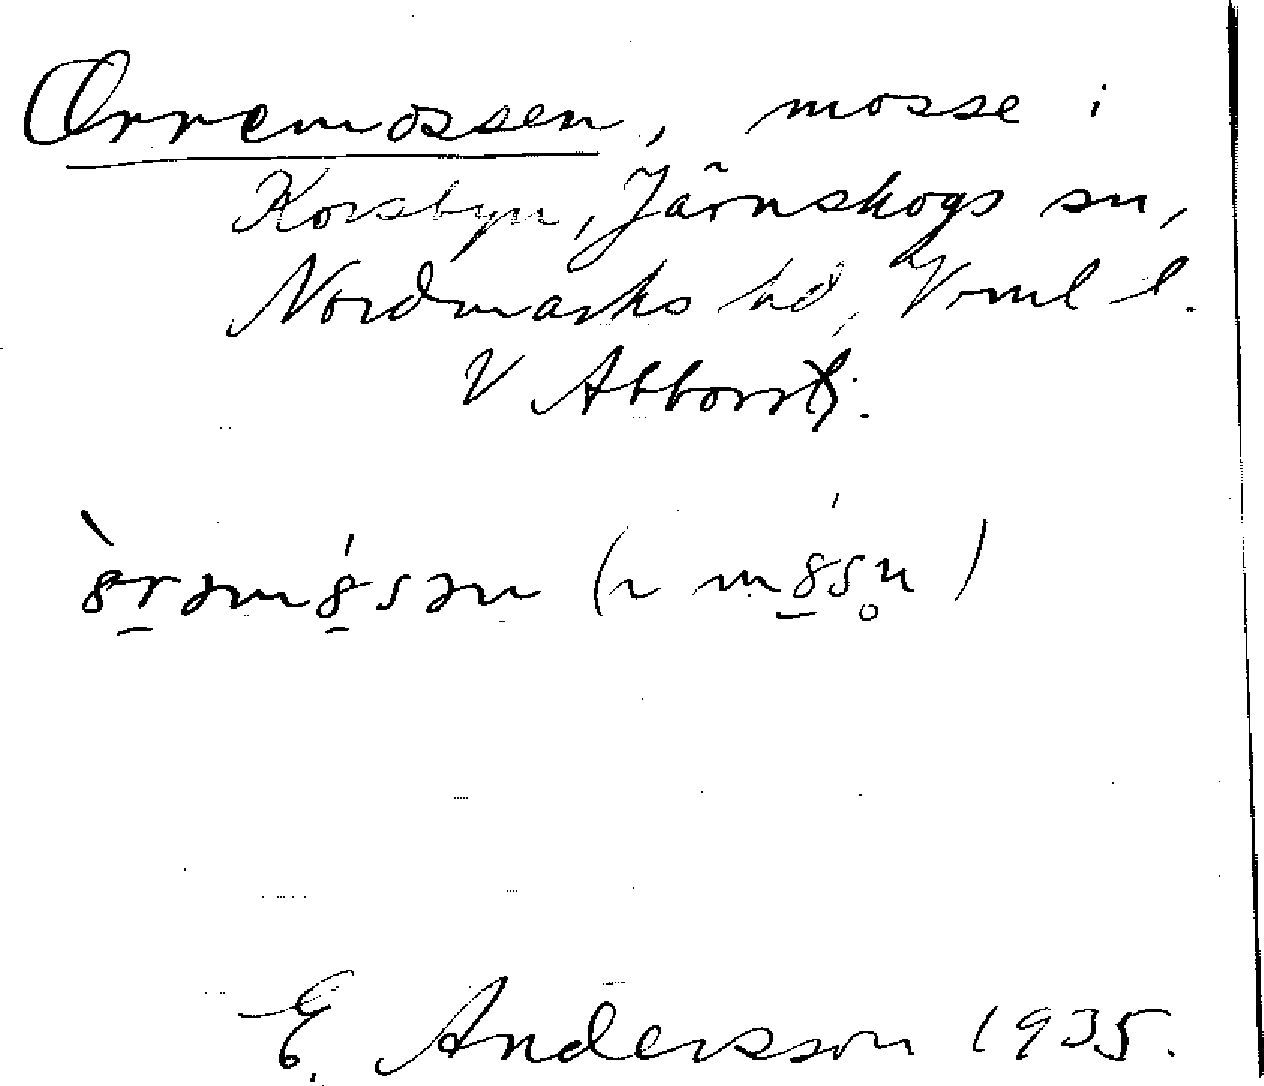 Orremossen, mosse i
Korsbyn, Järnskogs sn,
Nordmarks hd, Vrml l.
V Abborrtj.
(
)
E. Andersson 1935.